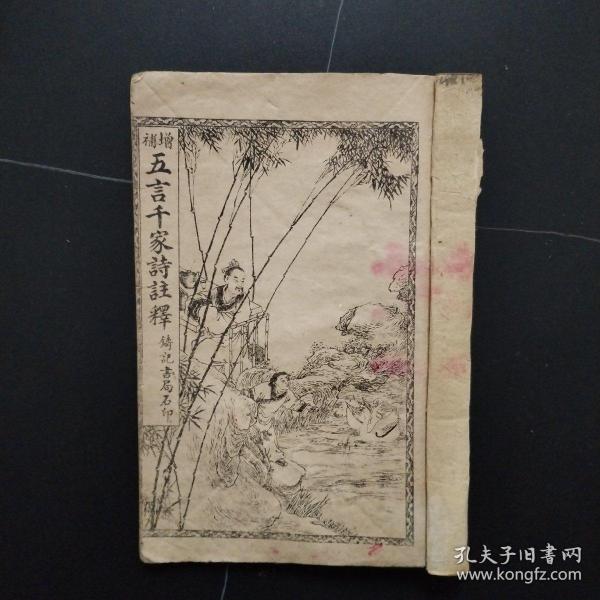 增補
五言千家詩註釋
鑄記書局石印
孔夫子旧书网
www.kongfz.com